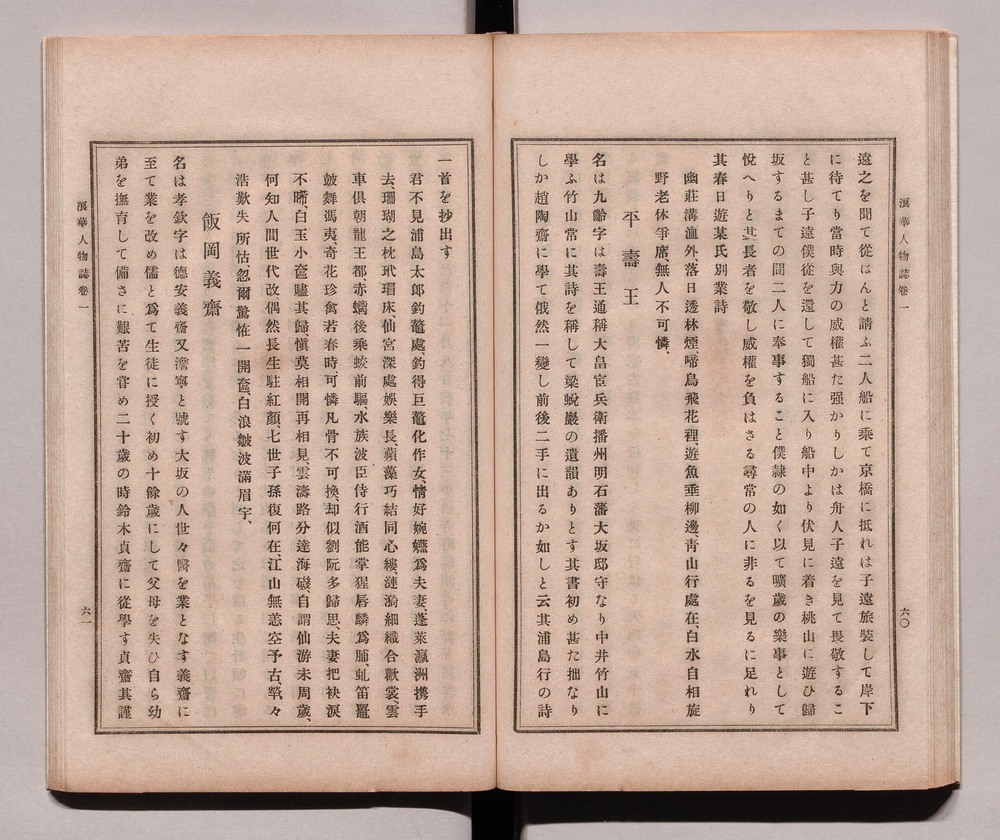 浪華人物誌卷一
六〇
遠之を聞て從はんと請ふ二人船に乘て京橋に抵れは子遠旅裝して岸下
に待てり當時與力の威權甚た强かりしかは舟人子遠を見て畏敬するこ
と甚し子遠僕從を還して獨船に入り船中より伏見に着き桃山に遊ひ歸
坂するまての間二人に奉事すること僕隸の如く以て曠歲の樂事として
悅へりと其長者を敬し威權を負はさる尋常の人に非るを見るに足れり
其春日遊某氏別業詩
幽莊溝洫外落日透林煙啼鳥飛花裡、遊魚垂柳邊、靑山行處在、白水自相旋
野老休爭席、無人不可憐、
平壽王
名は九齡字は壽王通稱大畠宦兵衛播州明石藩大坂邸守なり中井竹山に
學ふ竹山常に其詩を稱して梁蛻巖の遺韻ありとす其書初め甚た拙なり
しか趙陶齋に學て俄然一變し前後二手に出るか如しと云其浦島行の詩
一首を抄出す
君不見浦島太郎釣鼇處、釣得巨鼇化作女、情好婉嬿爲夫妻、蓬萊瀛洲携手
去、珊瑚之枕玳瑁床、仙宮深處娛樂長、蘋藻巧結同心縷、漣漪細織合歡裳、雲
車俱朝龍王都、赤螭後乘蛟前驅、水族波臣侍行酒能掌猩唇麟爲脯、虬笛鼉
皷舞馮夷、奇花珍禽若春時、可憐凡骨不可換、却似劉阮多歸思、夫妻把袂淚
不晞、白玉小奩贐其歸、愼莫相開再相見、雲濤路分達海磯、自謂仙游未周歲、
何知人間世代改、偶然長生駐紅顏、七世子孫復何在、江山無恙空予古、煢々
浩歎失所怙、忽爾驚怪一開奩、白浪皺波滿眉宇、
飯岡義齋
名は孝欽字は德安義齋又澹寧と號す大坂の人世々醫を業となす義齋に
至て業を改め儒と爲て生徒に授く初め十餘歲にして父母を失ひ自ら幼
弟を撫育して備さに艱苦を甞め二十歲の時鈴木貞齋に從學す貞齋其謹
浪華人物誌卷一
六一